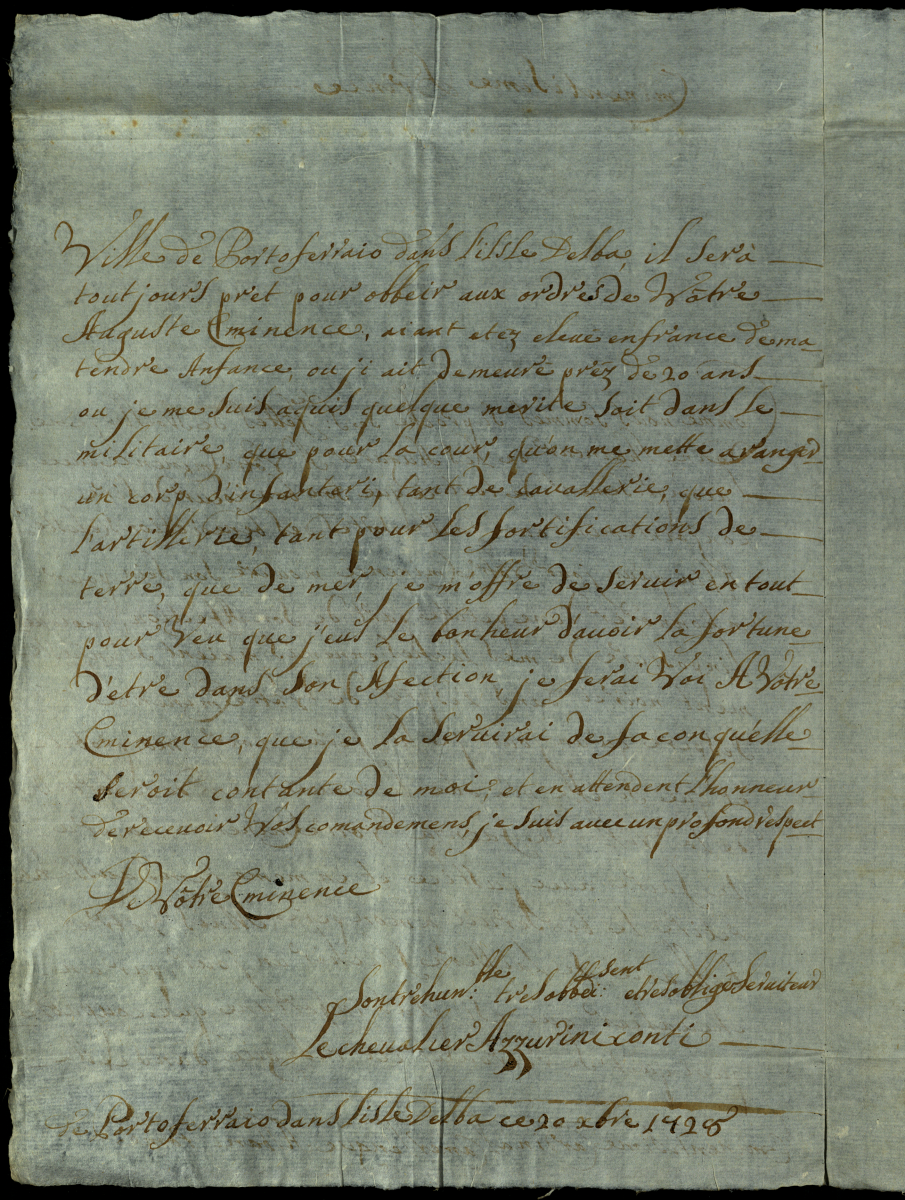 Ville de Portoferraio dans l'isle Delba, il serà
toutjours pret pour obbeir aux ordres de Vôtre
Auguste Eminence, aiant etez elevé enfrance de ma
tendre Anfance, ou ji ait demeuré préz de 20 ans
ou je me suis aquis quelque merite soit dans le
militaire, que pour la cour, qu'on me mette a ranger
un corp d'infanteri, tant de Cavallerie, que
l'artillerie, tant pour les fortifications de
terre, que de mer, je m'offre de servir en tout
pour veu que j'eus le bonheur d'avoir la fortune
d'etre dans son Afection je ferai Voi A Vôtre
Eminence, que je la servirai de facon qu'elle
seroit contante de moi, et en attendent l'honneur
de recevoir Vos comandemens, je suis avec un profond respect
De Vôtre Eminence
Son tre hum.ble tres obbei:sent et res obligé Serviteur
Le chevalier Azzurini conti
de Portoferraio dans l'isle Delba ce 20 xbre 1728